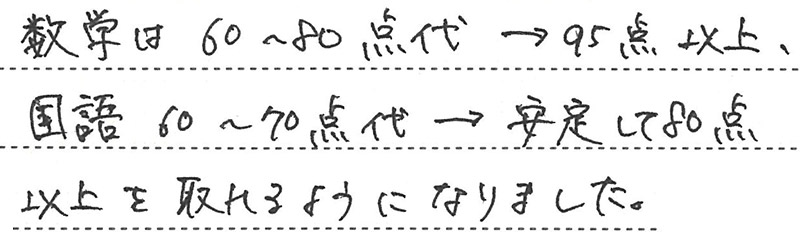 数学は 60～80点代 → 95点以上、
国語 60～70点代 → 安定して80点
以上を取れるようになりました。